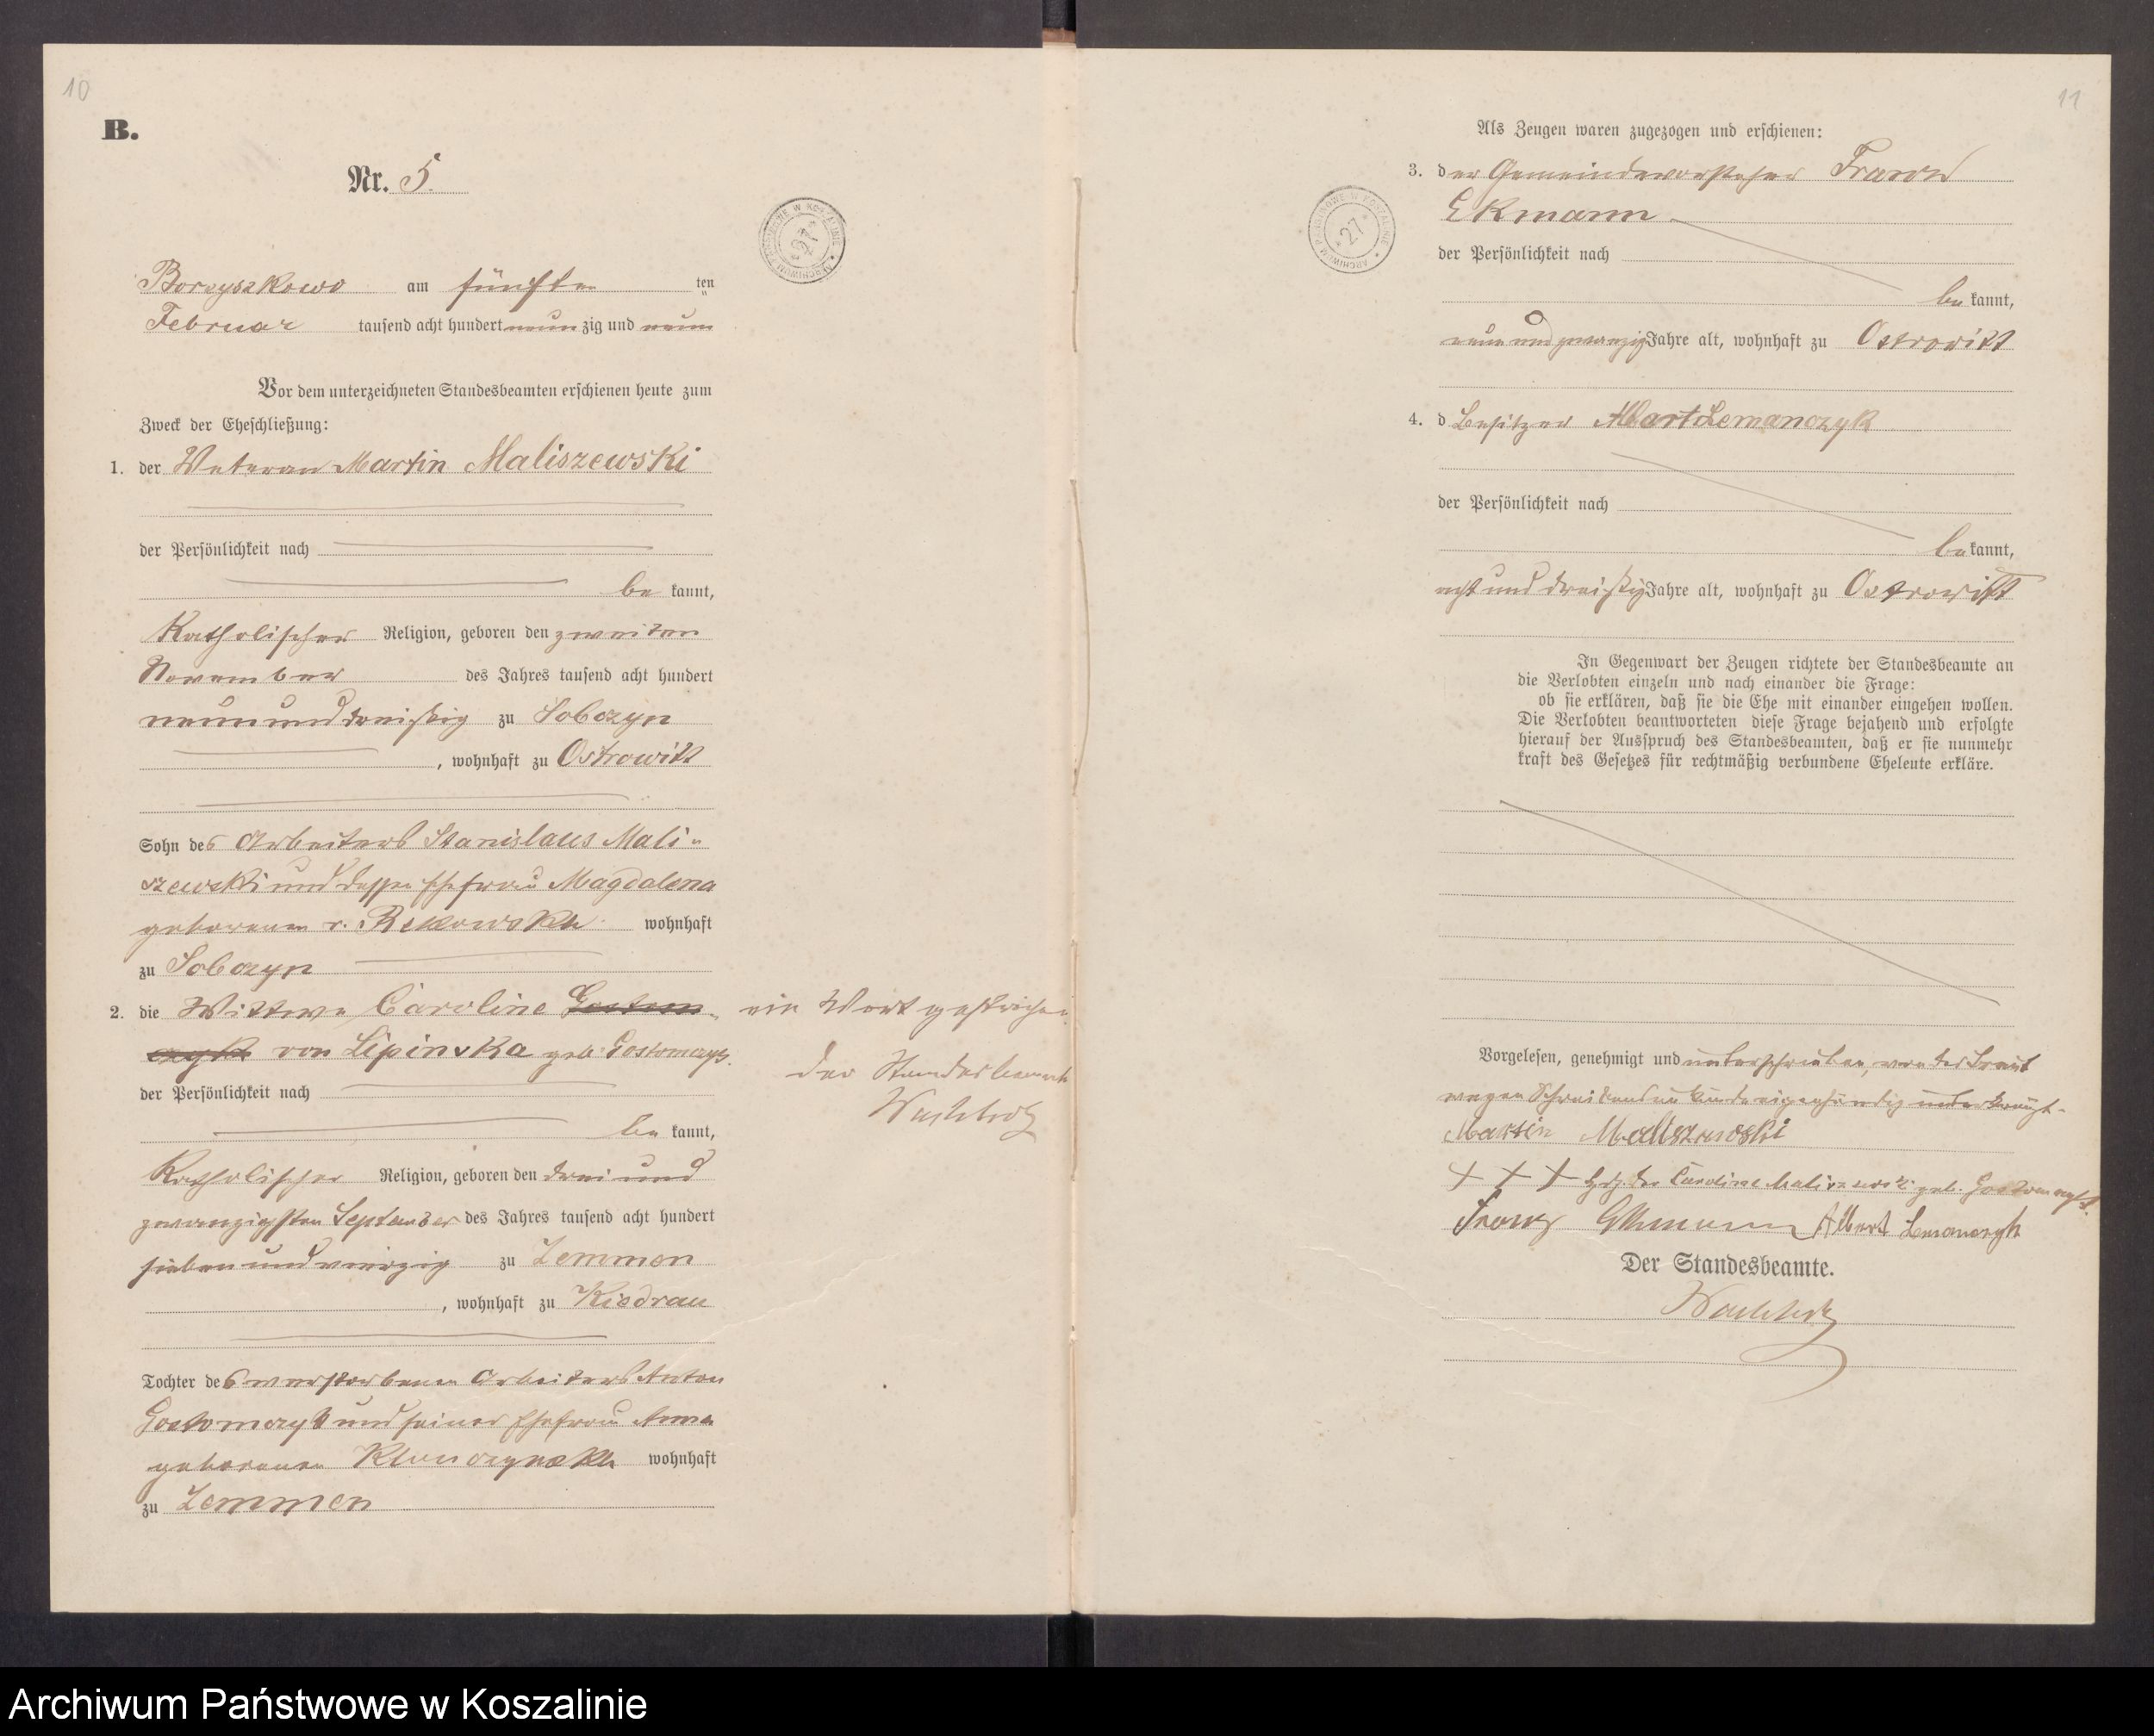 10
B.
Nr. 5.
Borzyszkowo am fünften ten
Februar tausend acht hundert neun zig und neun
Vor dem unterzeichneten Standesbeamten erschienen heute zum
Zweck der Eheschließung:
1. der Veteran Martin Maliszewski
der Persönlichkeit nach
be kannt,
Katholischer Religion, geboren den zweiten
November des Jahres tausend acht hundert
neun und dreißig zu Sobczyn
, wohnhaft zu Ostrowitt
Sohn des Arbeiters Stanislaus Mali-
szewski und dessen Ehefrau Magdalena
geborenen v. Rekowska wohnhaft
zu Sobczyn
2. die Wittwe Caroline Gostom-
czyk von Lipinska geb. Gostomczyk
der Persönlichkeit nach
be kannt,
Katholischer Religion, geboren den drei und
zwanzigsten September des Jahres tausend acht hundert
sieben und vierzig zu Zemmen
, wohnhaft zu Kiedrau
Tochter des verstorbenen Arbeiters Anton
Gostomczyk und seiner Ehefrau Anna
geborenen wohnhaft
zu Zemmen
ein Wort gestrichen.
Der Standesbeamte
ARCHIWUM PAŃSTWOWE W KOSZALINIE
27
11
Als Zeugen waren zugezogen und erschienen:
3. der Gemeindevorsteher Franz
Ekmann
der Persönlichkeit nach
be kannt,
neun und zwanzig Jahre alt, wohnhaft zu Ostrowitt
4. d Besitzer Albert Lemanczyk
der Persönlichkeit nach
be kannt,
acht und dreißig Jahre alt, wohnhaft zu Ostrowitt
In Gegenwart der Zeugen richtete der Standesbeamte an
die Verlobten einzeln und nach einander die Frage:
ob sie erklären, daß sie die Ehe mit einander eingehen wollen.
Die Verlobten beantworteten diese Frage bejahend und erfolgte
hierauf der Ausspruch des Standesbeamten, daß er sie nunmehr
kraft des Gesetzes für rechtmäßig verbundene Eheleute erkläre.
Vorgelesen, genehmigt und unterschrieben, von der Braut
wegen Schreibensunkunde eigenhändig unterkreuzt.
Martin Maliszewski
+ + + Hdz. der Caroline Maliszewski geb. Gostomczyk
Franz Ekmann Albert Lemanczyk
Der Standesbeamte.
ARCHIWUM PAŃSTWOWE W KOSZALINIE
27
Archiwum Państwowe w Koszalinie